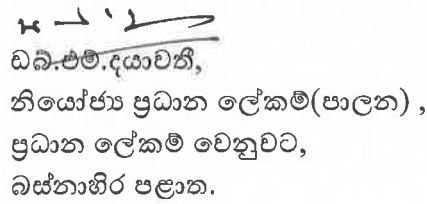 ඩබ්.එම්.දයාවතී,
නියෝජ්‍ය ප්‍රධාන ලේකම්(පාලන) ,
ප්‍රධාන ලේකම් වෙනුවට,
බස්නාහිර පළාත.